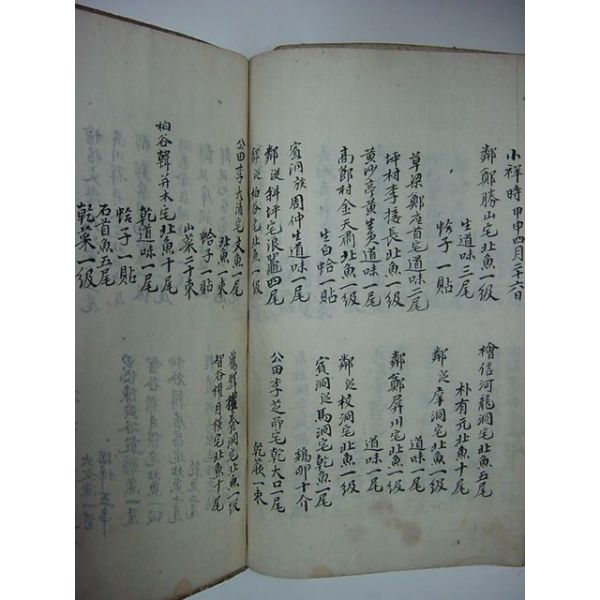 小祥時 甲申四月二十六日
鄰鄭勝山宅 北魚一級
生道味三尾
蛤子一貼
草梁鄭座首宅 道味二尾
坪村李接長 北魚一級
黃沙亭黃生員 道味一尾
高郎村金天鼐 北魚一級
生白蛤一貼
賓洞族周仲 生道味一尾
鄰從斜坪宅 浪 四尾
鄰從柏谷宅 北魚一級
檜信河龍洞宅 北魚五尾
朴有元 北魚十尾
鄰從 洞宅 北魚一級
道味一尾
鄰鄭屏川宅 北魚一級
道味一尾
鄰從校洞宅 北魚一級
賓洞從馬洞宅 乾魚一尾
鷄卵十介
公田李芝 宅 乾大口一尾
乾蕨一束
公田李大浦宅 大魚一尾
北魚一束
蛤子一貼
山菜二十束
柏谷韓 宅 北魚十尾
乾道味一尾
蛤子一貼
石首魚五尾
乾菜一級
權養洞宅 北魚一級
智谷權月 宅 北魚十尾